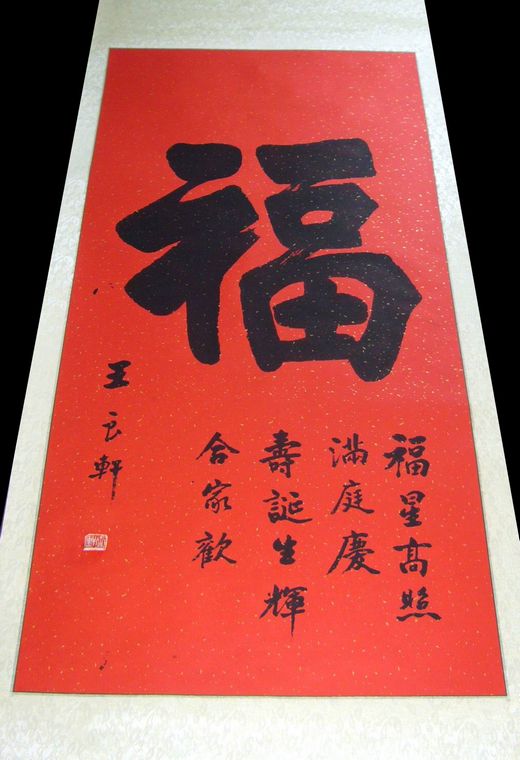 福
福星高照
满庭慶
壽誕生輝
合家歡
王良軒